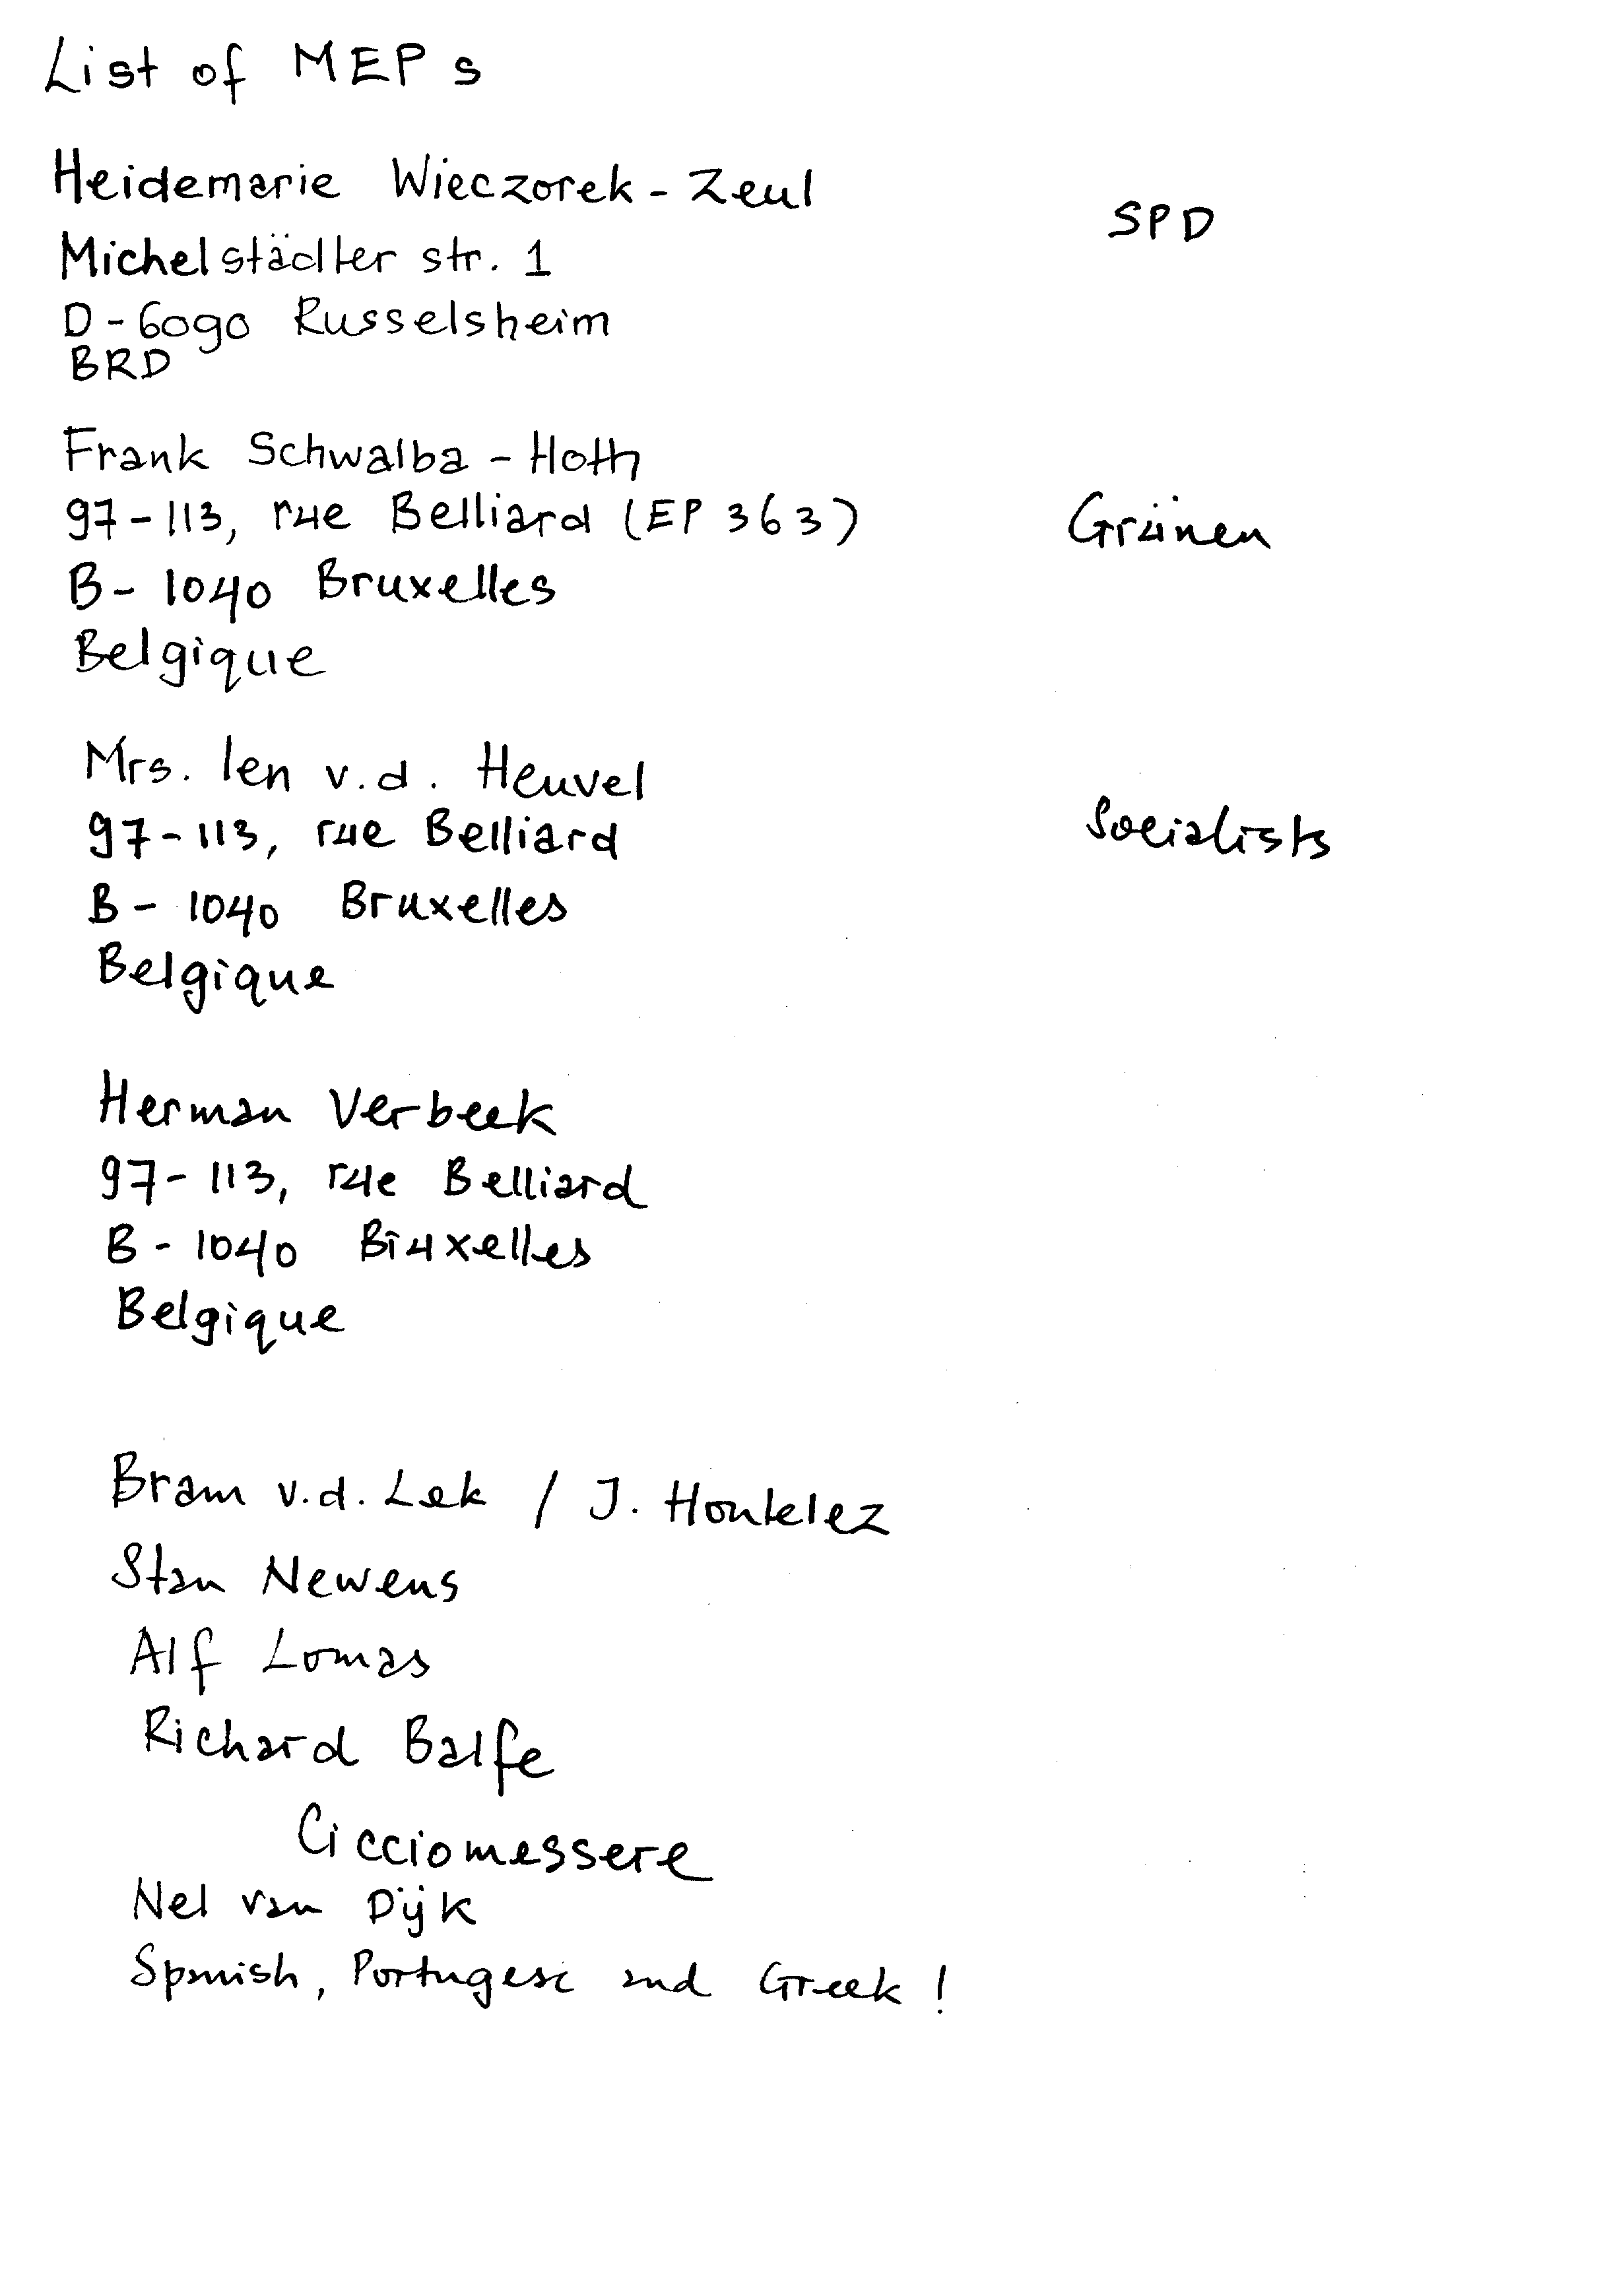 List of MEPs
Heidemarie Wieczorek-Zeul
SPD
Michelstädter str. 1
D-6090 Russelsheim
BRD
Frank Schwalba-Hoth
97-113, rue Belliard (EP 363)
Grünen
B-1040 Bruxelles
Belgique
Mrs. Ien v.d. Heuvel
97-113, rue Belliard
Socialists
B-1040 Bruxelles
Belgique
Herman Verbeek
97-113, rue Belliard
B-1040 Bruxelles
Belgique
Bram v.d. Lek / J. Hontelez
Stan Newens
Alf Lomas
Richard Balfe
Cicciomessere
Nel van Dijk
Spanish, Portugese and Greek!